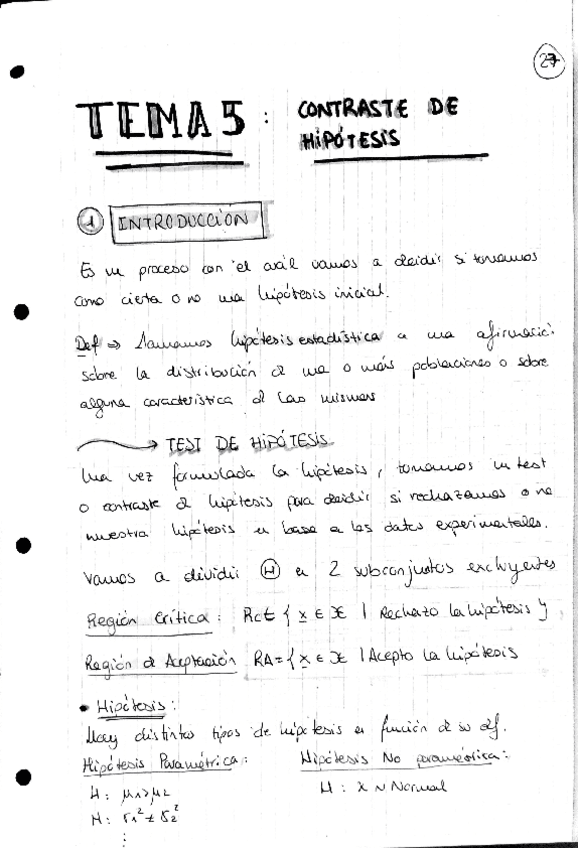 27
TEMA 5 : CONTRASTE DE
HIPÓTESIS
1 INTRODUCCIÓN
Es un proceso con el cuál vamos a decidir si tomamos
como cierta o no una hipótesis inicial.
Def ⇒ Llamamos hipótesis estadística a una afirmació:
sobre la distribución d una o más poblaciones o sobre
alguna característica d las mismas
→ TEST DE HIPÓTESIS
Una vez formulada la hipótesis, tomamos un test
o contraste d hipótesis para decidir si rechazamos o no
nuestra hipótesis en base a los datos experimentales.
Vamos a dividir Ⓗ en 2 subconjuntos excluyentes
Región Crítica : RC = { x ∈ X | Rechazo la hipótesis }
Región d Aceptación RA = { x ∈ X | Acepto la hipótesis
• Hipótesis :
Hay distintos tipos de hipótesis en función d su def.
Hipótesis Paramétrica : Hipótesis No paramétrica :
H : μ1 > μ2 H : X ~ Normal
H : σ1² ≠ σ2²
⋮